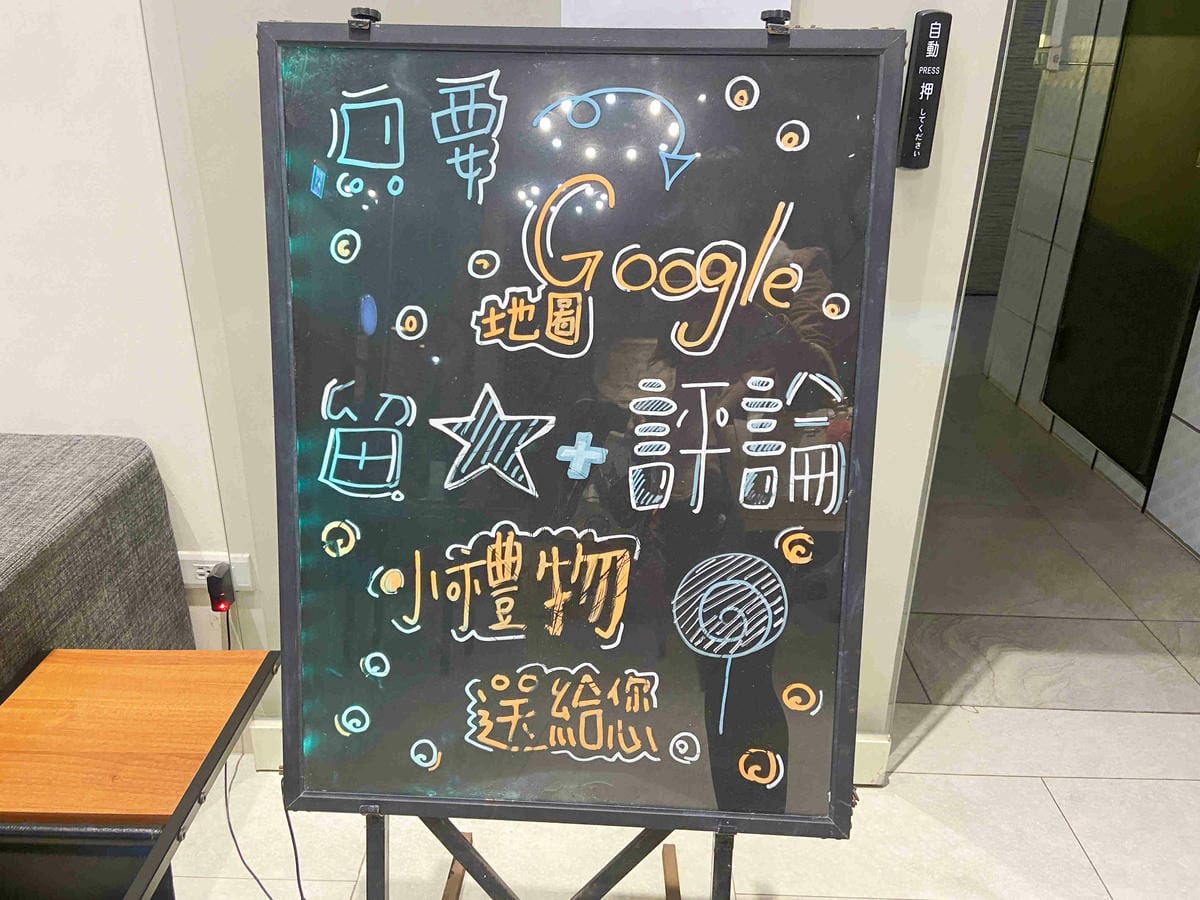 只要
Google
地圖
留★+評論
小禮物
送給您
自動
PRESS
押
してください